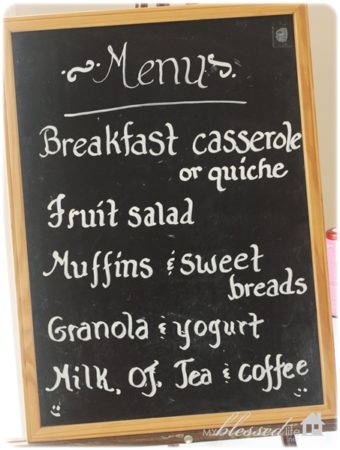 ~Menu~
Breakfast casserole
or quiche
Fruit salad
Muffins & sweet
breads
Granola & yogurt
Milk, OJ, Tea & coffee
MY blessed life